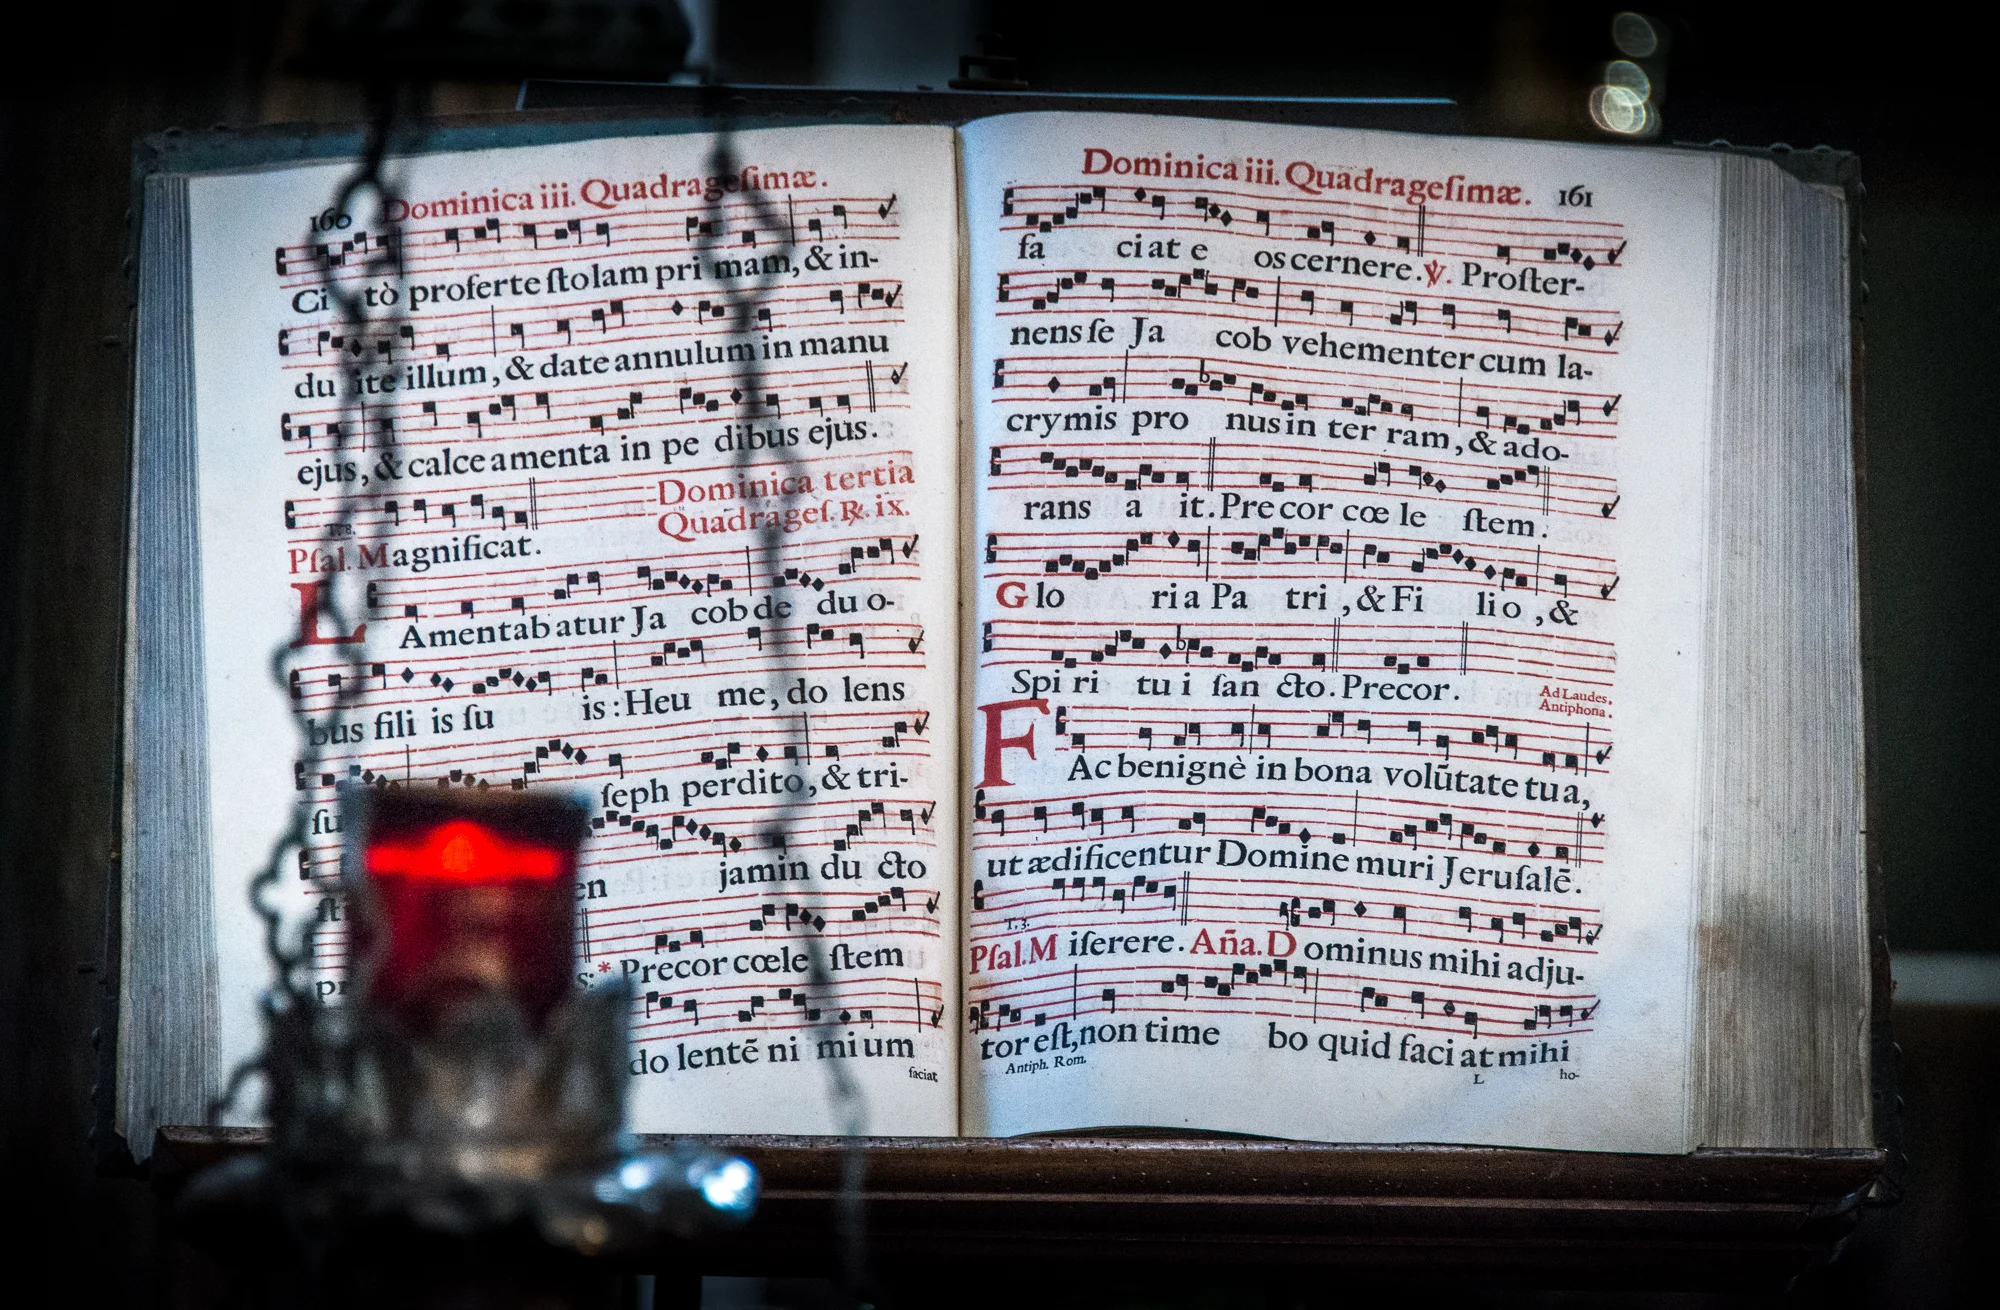 160 Dominica iii. Quadrageſimæ.
Ci tò proferte ſtolam pri mam, & in-
du ite illum, & date annulum in manu
ejus, & calceamenta in pe dibus ejus.
Dominica tertia
Quadrageſ. ℟. ix.
Pſal. Magnificat.
LAmentabatur Ja cob de du o-
bus fili is ſu is: Heu me, do lens
ſu ſeph perdito, & tri-
ſti en jamin du cto
s: * Precor cœle ſtem
do lentē ni mium
faciat
Dominica iii. Quadrageſimæ. 161
fa ciat e os cernere. ℣. Proſter-
nens ſe Ja cob vehementer cum la-
crymis pro nus in ter ram, & ado-
rans a it. Precor cœ le ſtem.
Glo ria Pa tri, & Fi lio, &
Spi ri tu i ſan cto. Precor.
Ad Laudes,
Antiphona.
FAc benignè in bona volūtate tua,
ut ædificentur Domine muri Jeruſalē.
T. 3.
Pſal. Miſerere. Aña. Dominus mihi adju-
tor eſt, non time bo quid faci at mihi
Antiph. Rom. L ho-